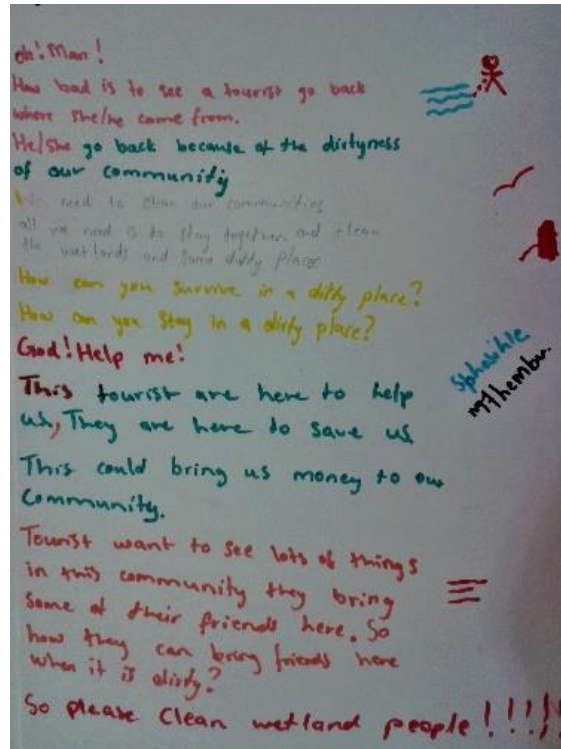 oh! Man!
How bad is to see a tourist go back
where she/he come from.
He/She go back because of the dirtyness
of our community
We need to clean our communities
all we need is to stay together and clean
the wetlands and some dirty places
How can you survive in a dirty place?
How can you stay in a dirty place?
God! Help me!
This tourist are here to help
us, They are here to save us
This could bring us money to our
Community.
Tourist want to see lots of things
in this community they bring
some of their friends here. So
how they can bring friends here
when it is dirty?
So please clean wetland people!!!!!
Sphesihle
Mthembu.